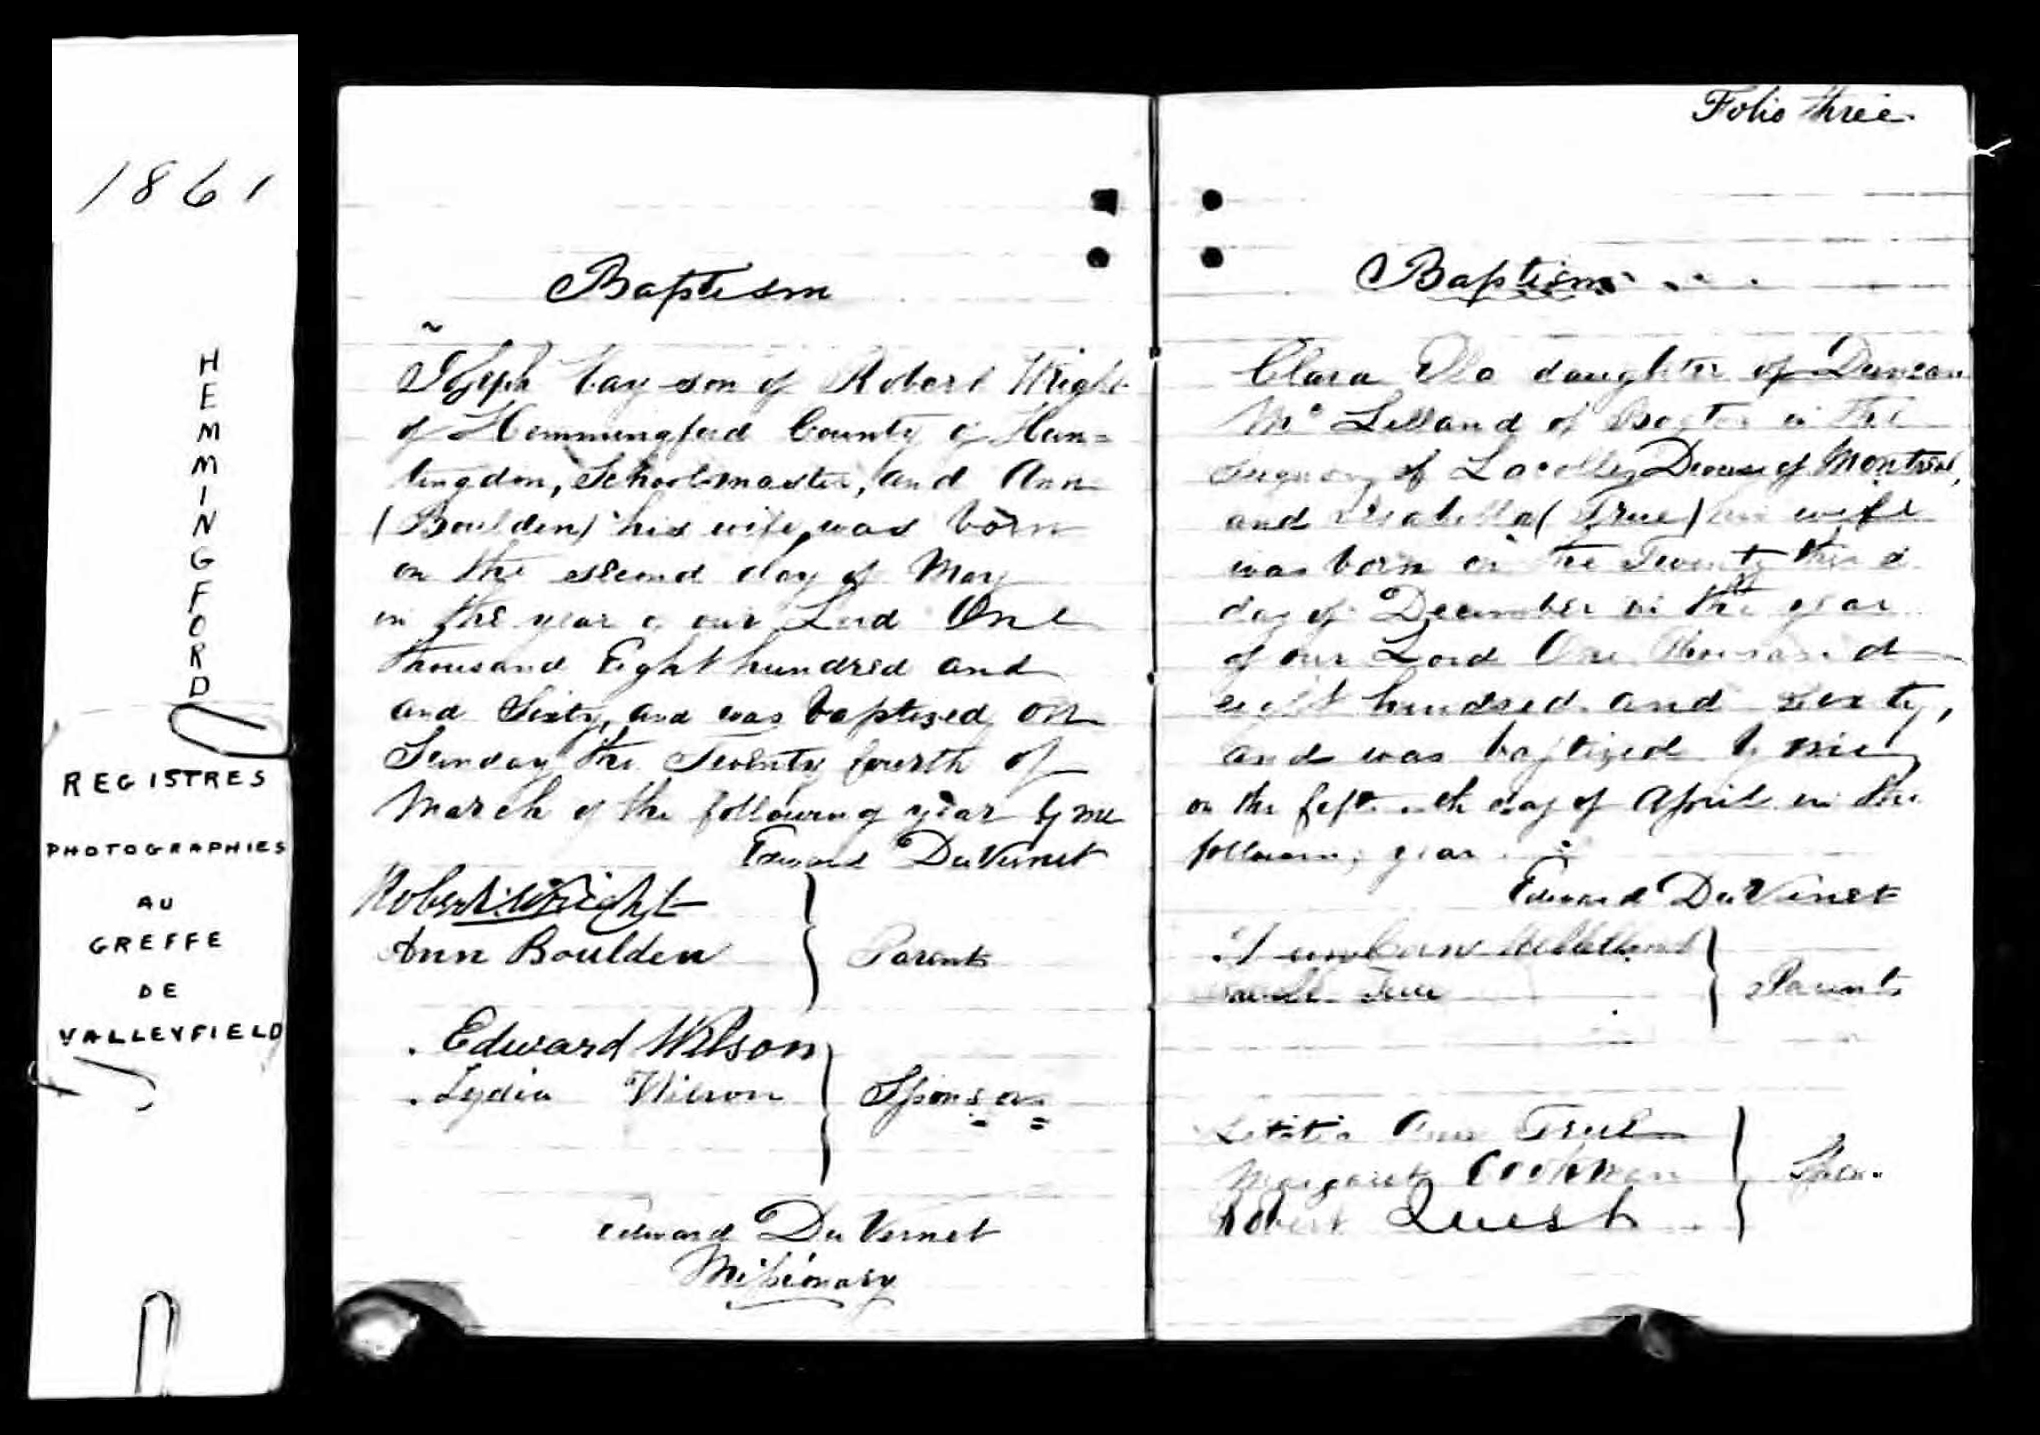 1861
HEMMINGFORD
REGISTRES
PHOTOGRAPHIES
AU
GREFFE
DE
VALLEYFIELD
Baptism
Joseph son of Robert Wright
of Hemmingford County of Hun=
tingdon, Schoolmaster, and Ann
(Boulden) his wife, was born
on the second day of May
in the year of our Lord One
thousand Eight hundred and
and Sixty, and was baptized on
Sunday the Twenty fourth of
March of the following year by me
Edward DuVernet
Robert Wright
Ann Boulden
Parents
Edward Wilson
Lydia Wilson
Sponsors
Edward DuVernet
Missionary
Folio three
Baptism
Clara daughter of Duncan
Mc Lelland of in the
of Lacolle, Diocese of Montreal,
and Isabella (True) his wife
was born on the Twenty third
day of December in the year
of our Lord One Thousand
eight hundred and sixty,
and was baptized by me
on the day of April in the
following year
Edward DuVernet
True
Parents
Letitia Ann True
Margaret Cookman
Robert Quest